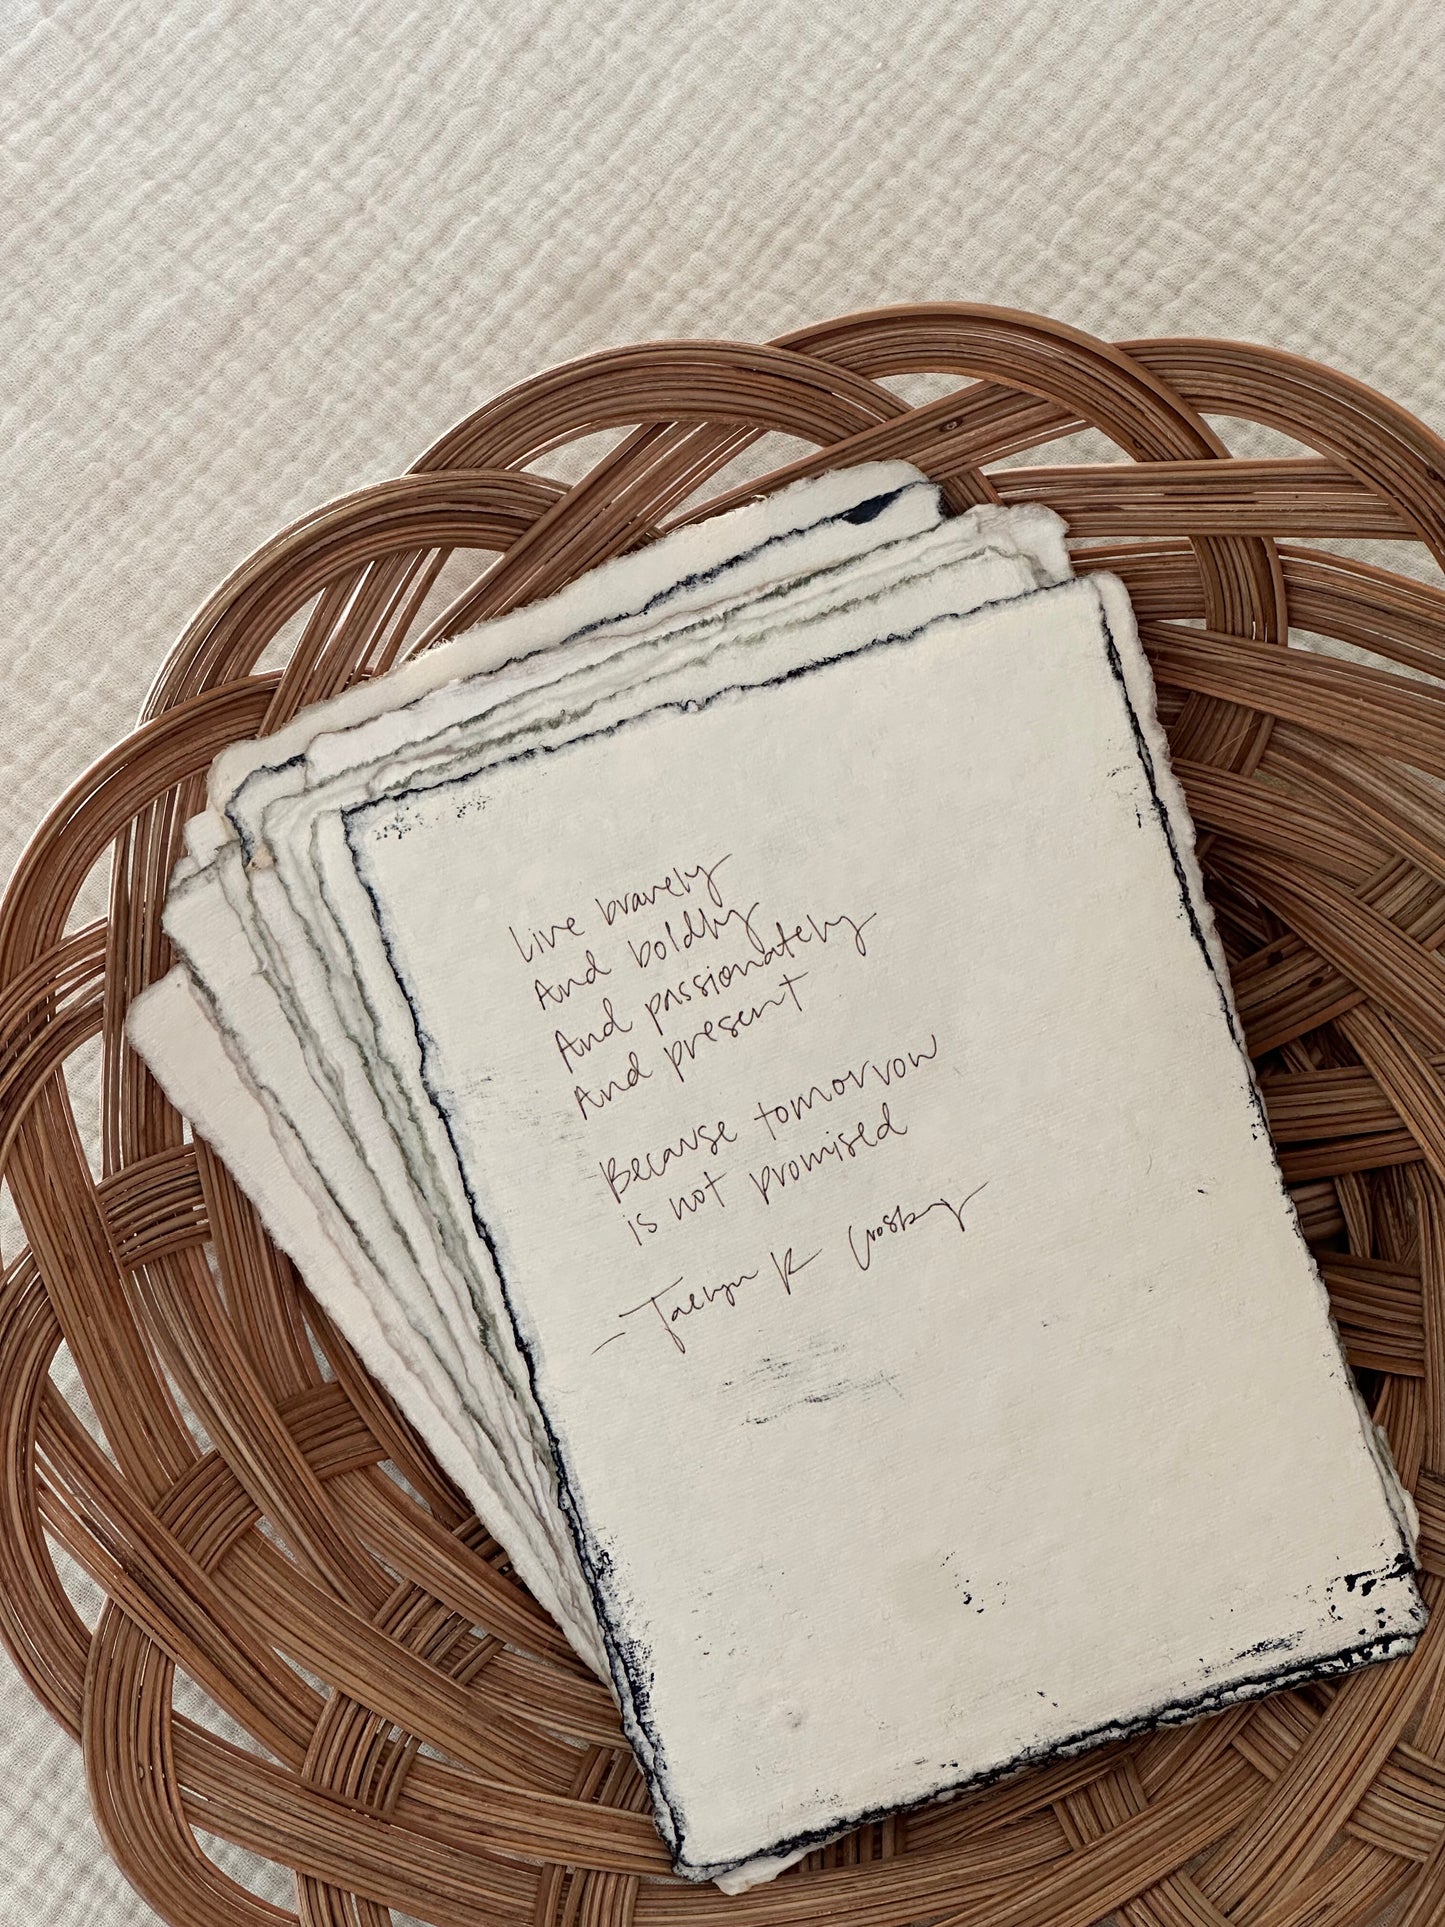 Live bravely
And boldly
And passionately
And present
Because tomorrow
is not promised
- Taelyn K Crosby